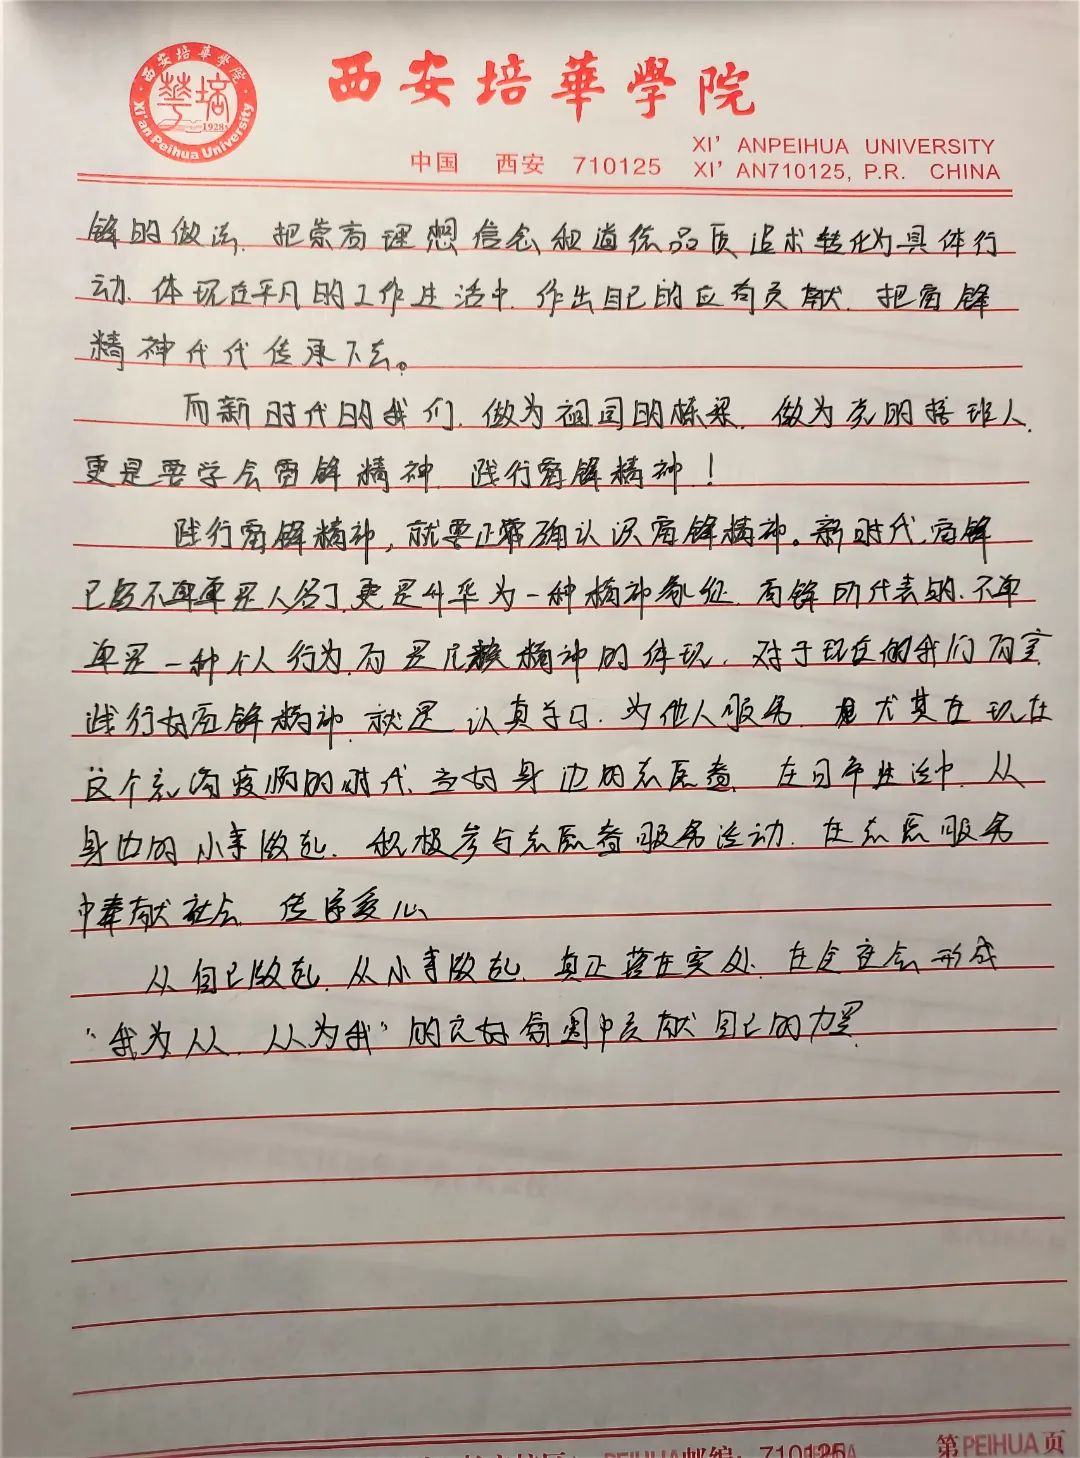 西安培華學院
西安培華學院
華培
1928
Xi'an Peihua University
中国 西安 710125
XI' ANPEIHUA UNIVERSITY
XI' AN710125, P.R. CHINA
锋的做法,把崇高理想信念和道德品质追求转化为具体行
动,体现在平凡的工作生活中,作出自己的应有贡献,把雷锋
精神代代传承下去。
而新时代的我们,做为祖国的栋梁,做为党的接班人,
更是要学会雷锋精神,践行雷锋精神!
践行雷锋精神,就要正确认识雷锋精神。新时代,雷锋
已经不单单是人名了,更是升华为一种精神象征,雷锋所代表的,不单
单是一种个人行为,而是民族精神的体现,对于现在的我们而言,
践行好雷锋精神,就是认真学习,为他人服务,尤其在现在
这个充满疫病的时代,当好身边的志愿者,在日常生活中,从
身边的小事做起,积极参与志愿者服务活动,在志愿服务
中奉献社会,传递爱心
从自己做起,从小事做起,真正落在实处,在全社会形成
"我为人人,人人为我"的良好氛围中贡献自己的力量
邮编:710125
第PEIHUA页